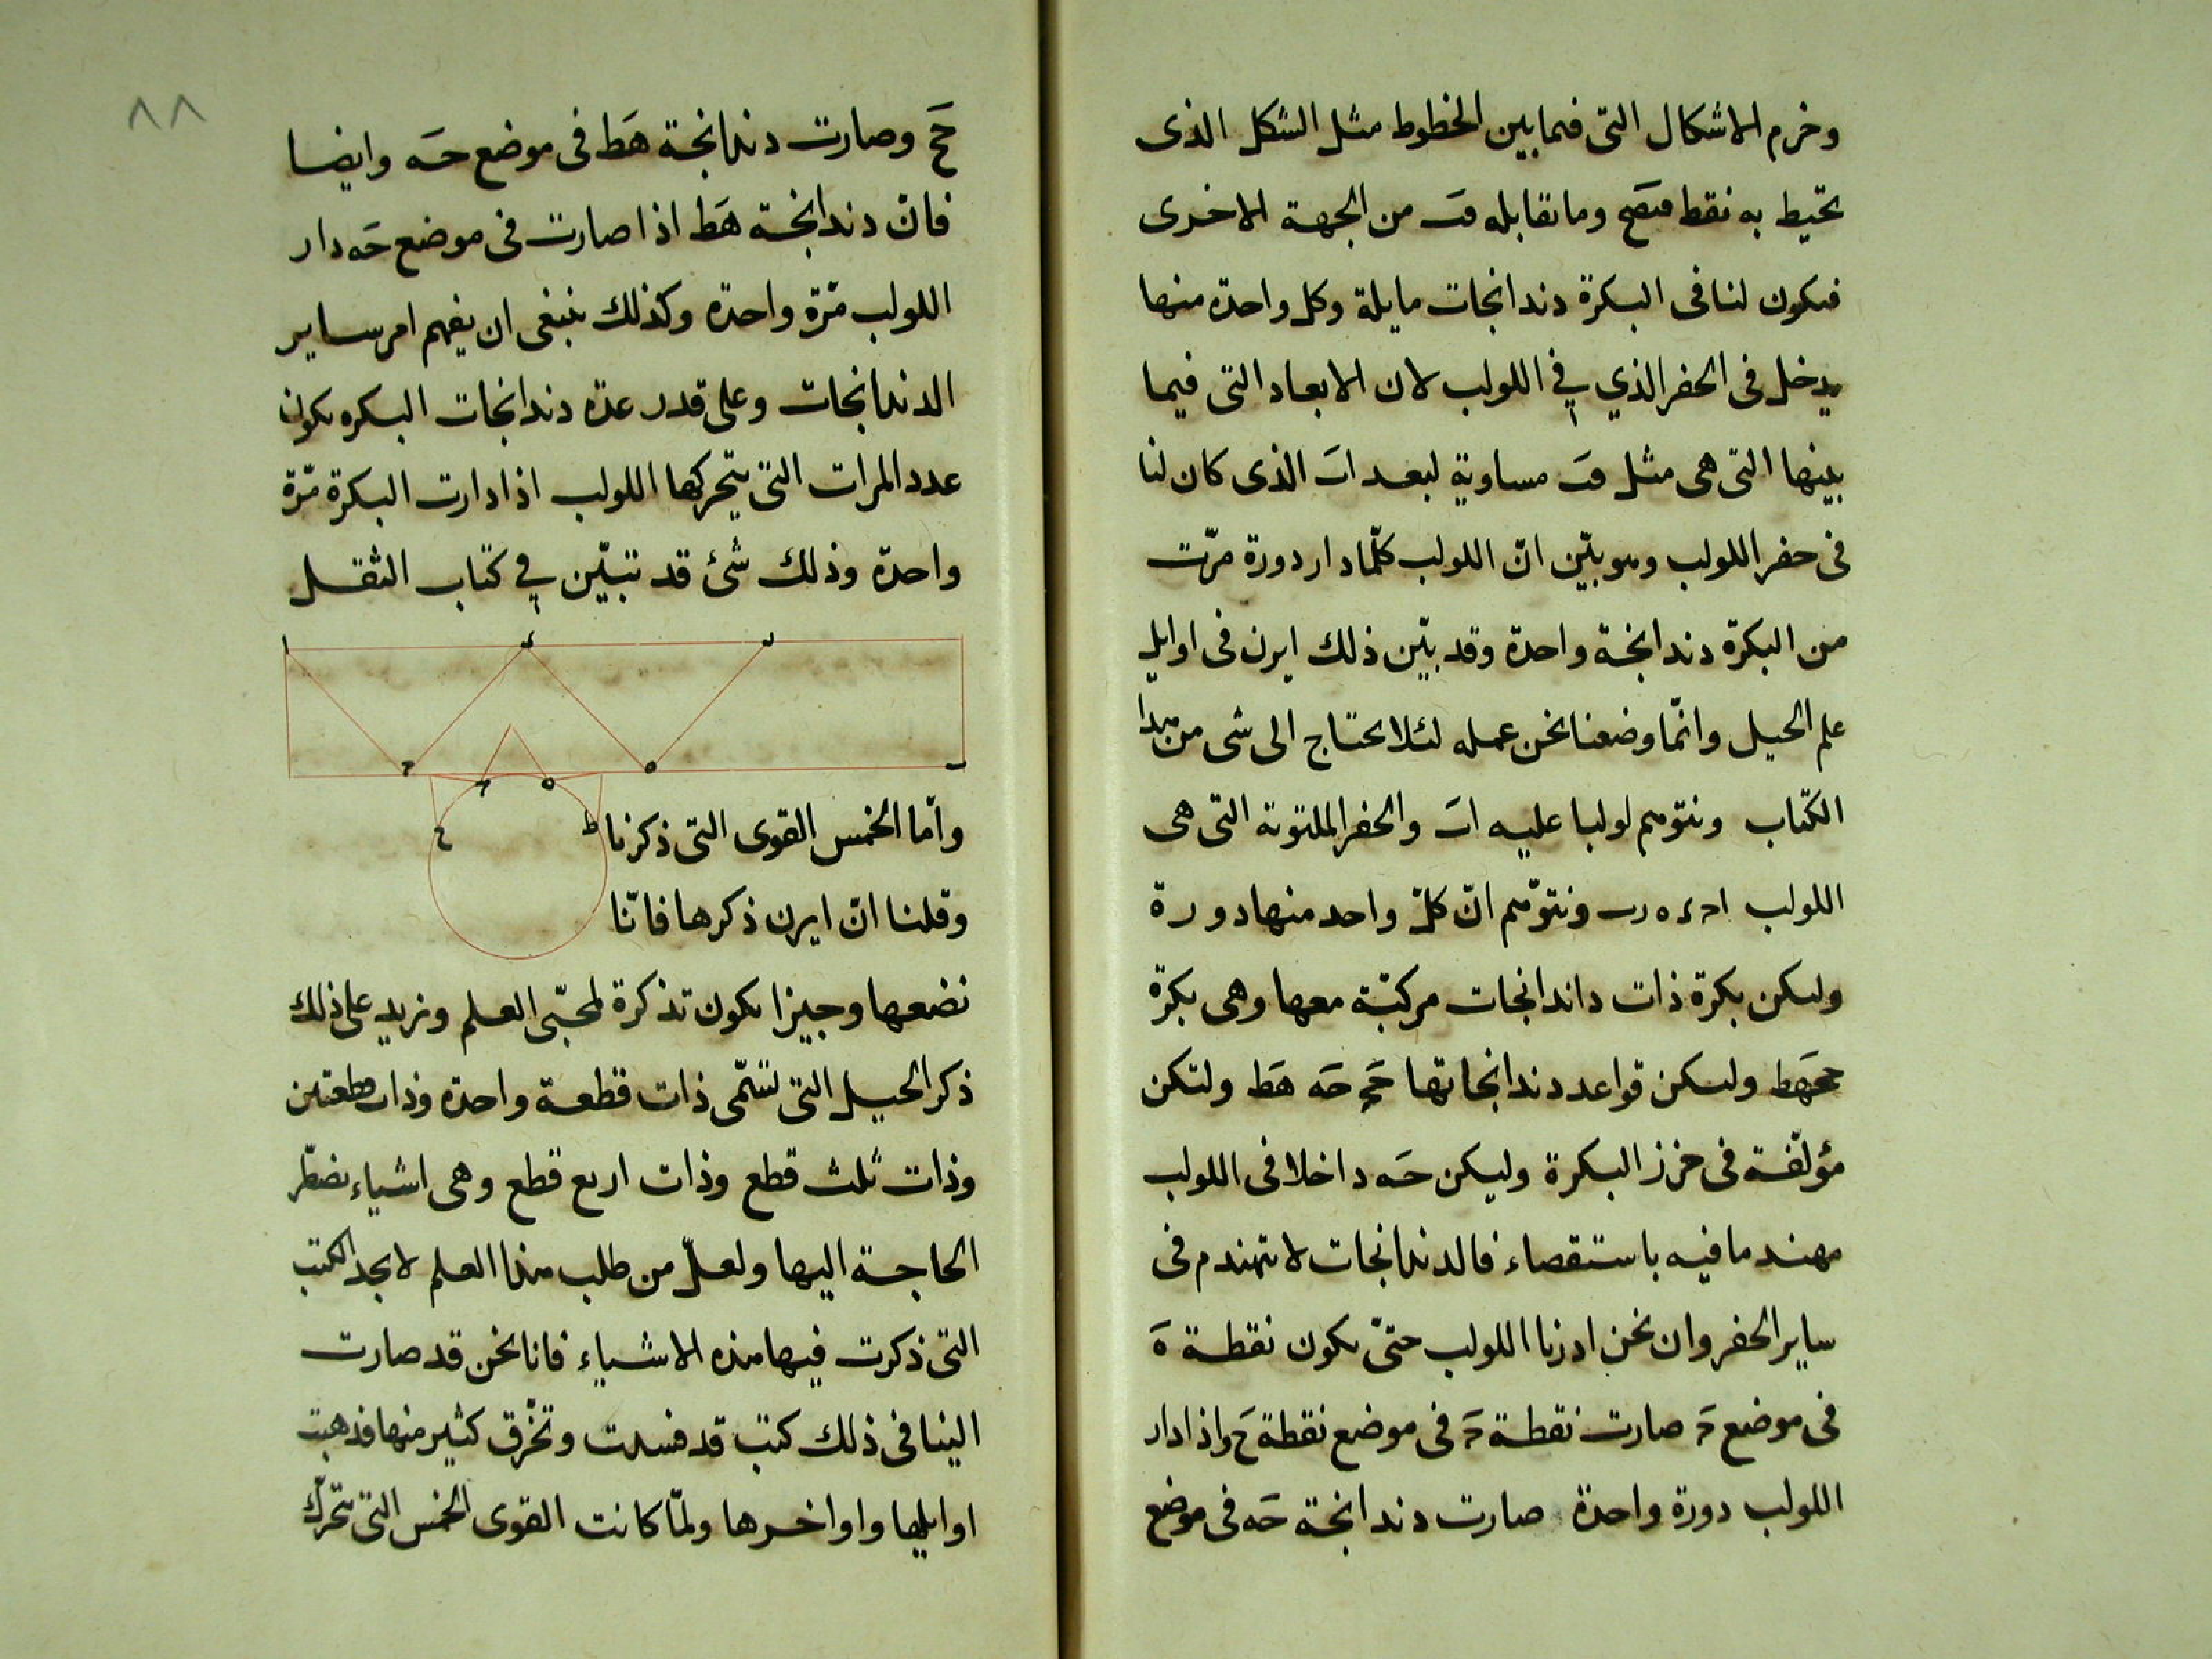 وخرم الاشكال التى فيما بين الخطوط مثل الشكل الذى
تحيط به نقط وما تقابله من الجهة الاخرى
فيكون لنا فى البكرة دندانجات مايلة وكل واحدة منها
يدخل فى الحفر الذي في اللولب لان الابعاد التى فيما
بينها التى هى مثل مساوية لبعد اب الذى كان لنا
فى حفر اللولب وهو بيّن انّ اللولب كلّما دار دورة مرّت
من البكرة دندانجة واحدة وقد بيّن ذلك ايرن فى اوايل
علم الحيل وانّما وضعنا نحن عمله لئلا نحتاج الى شى من هذا
الكتاب ونتوهم لولبا عليه اب والحفر الملتوية التى هى
اللولب ونتوهّم انّ كلّ واحد منها دورة
وليكن بكرة ذات داندانجات مركبّة معها وهى بكرة
ححهط وليكن قواعد دندانجاتها حح حه هط ولتكن
مؤلّفة فى خرز البكرة وليكن حه داخلا فى اللولب
مهندما فيه باستقصاء فالدندانجات لا تتهندم فى
ساير الحفر وان نحن ادرنا اللولب حتىّ يكون نقطة ه
فى موضع ح صارت نقطة ح فى موضع نقطة ح واذا دار
اللولب دورة واحدة صارت دندانجة حه فى موضع
٨٨
حح وصارت دندانجة هط فى موضع حه وايضا
فانّ دندانجة هط اذا صارت فى موضع حه دار
اللولب مّرة واحدة وكذلك ينبغى ان يفهم امر ساير
الدندانجات وعلى قدر عدّة دندانجات البكره يكون
عدد المرات التى يتحركها اللولب اذا دارت البكرة مّرة
واحدة وذلك شئ قد تبيّن في كتاب الثقل
ا د ر
ح ه ب
ح ه
ح ط
وامّا الخمس القوى التى ذكرنا
وقلنا انّ ايرن ذكرها فانّا
نضعها وجيزا يكون تذكرة لمحبّى العلم ونزيد على ذلك
ذكر الحيل التى تسّمى ذات قطعة واحدة وذات قطعتين
وذات ثلث قطع وذات اربع قطع وهى اشياء يضطّر
الحاجة اليها ولعلّ من طلب هذا العلم لا يجد الكتب
التى ذكرت فيها هذه الاشياء فانا نحن قد صارت
الينا فى ذلك كتب قد فسدت وتخّرق كثير منها فذهبت
اوايلها واواخرها ولمّا كانت القوى الخمس التى تحّرك